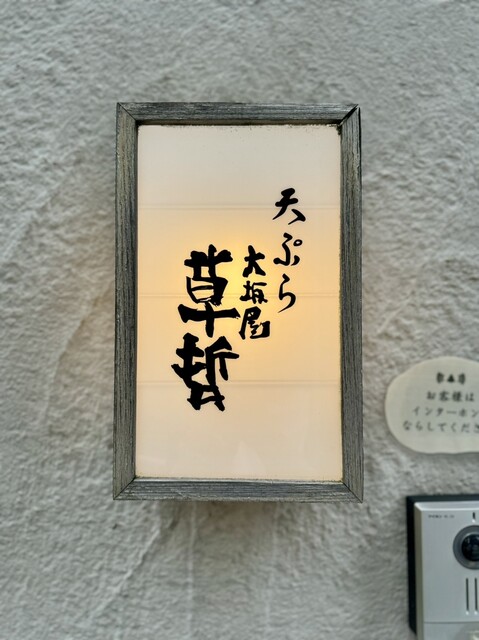 天ぷら
大坂屋
草哲
お客様は
インターホン
ならしてくださ